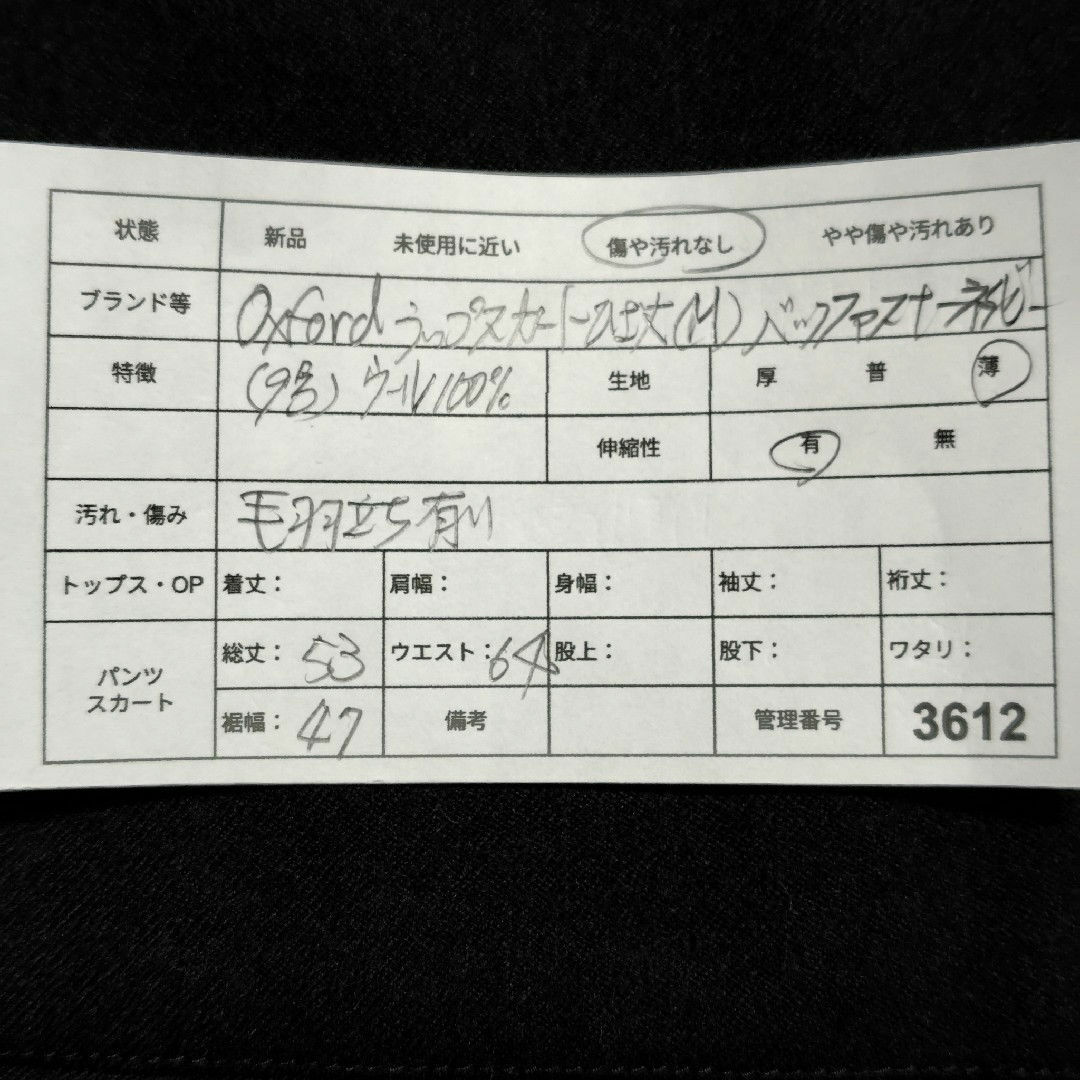 状態 新品 未使用に近い 傷や汚れなし やや傷や汚れあり
ブランド等 Oxford ラップスカート ひざ丈(M) バックファスナー ネイビー
特徴 (9号) ウール100% 生地 厚 普 薄
伸縮性 有 無
汚れ・傷み 毛羽立ち有り
トップス・OP 着丈: 肩幅: 身幅: 袖丈: 裄丈:
パンツ スカート 総丈: 53 ウエスト: 64 股上: 股下: ワタリ:
裾幅: 47 備考 管理番号 3612